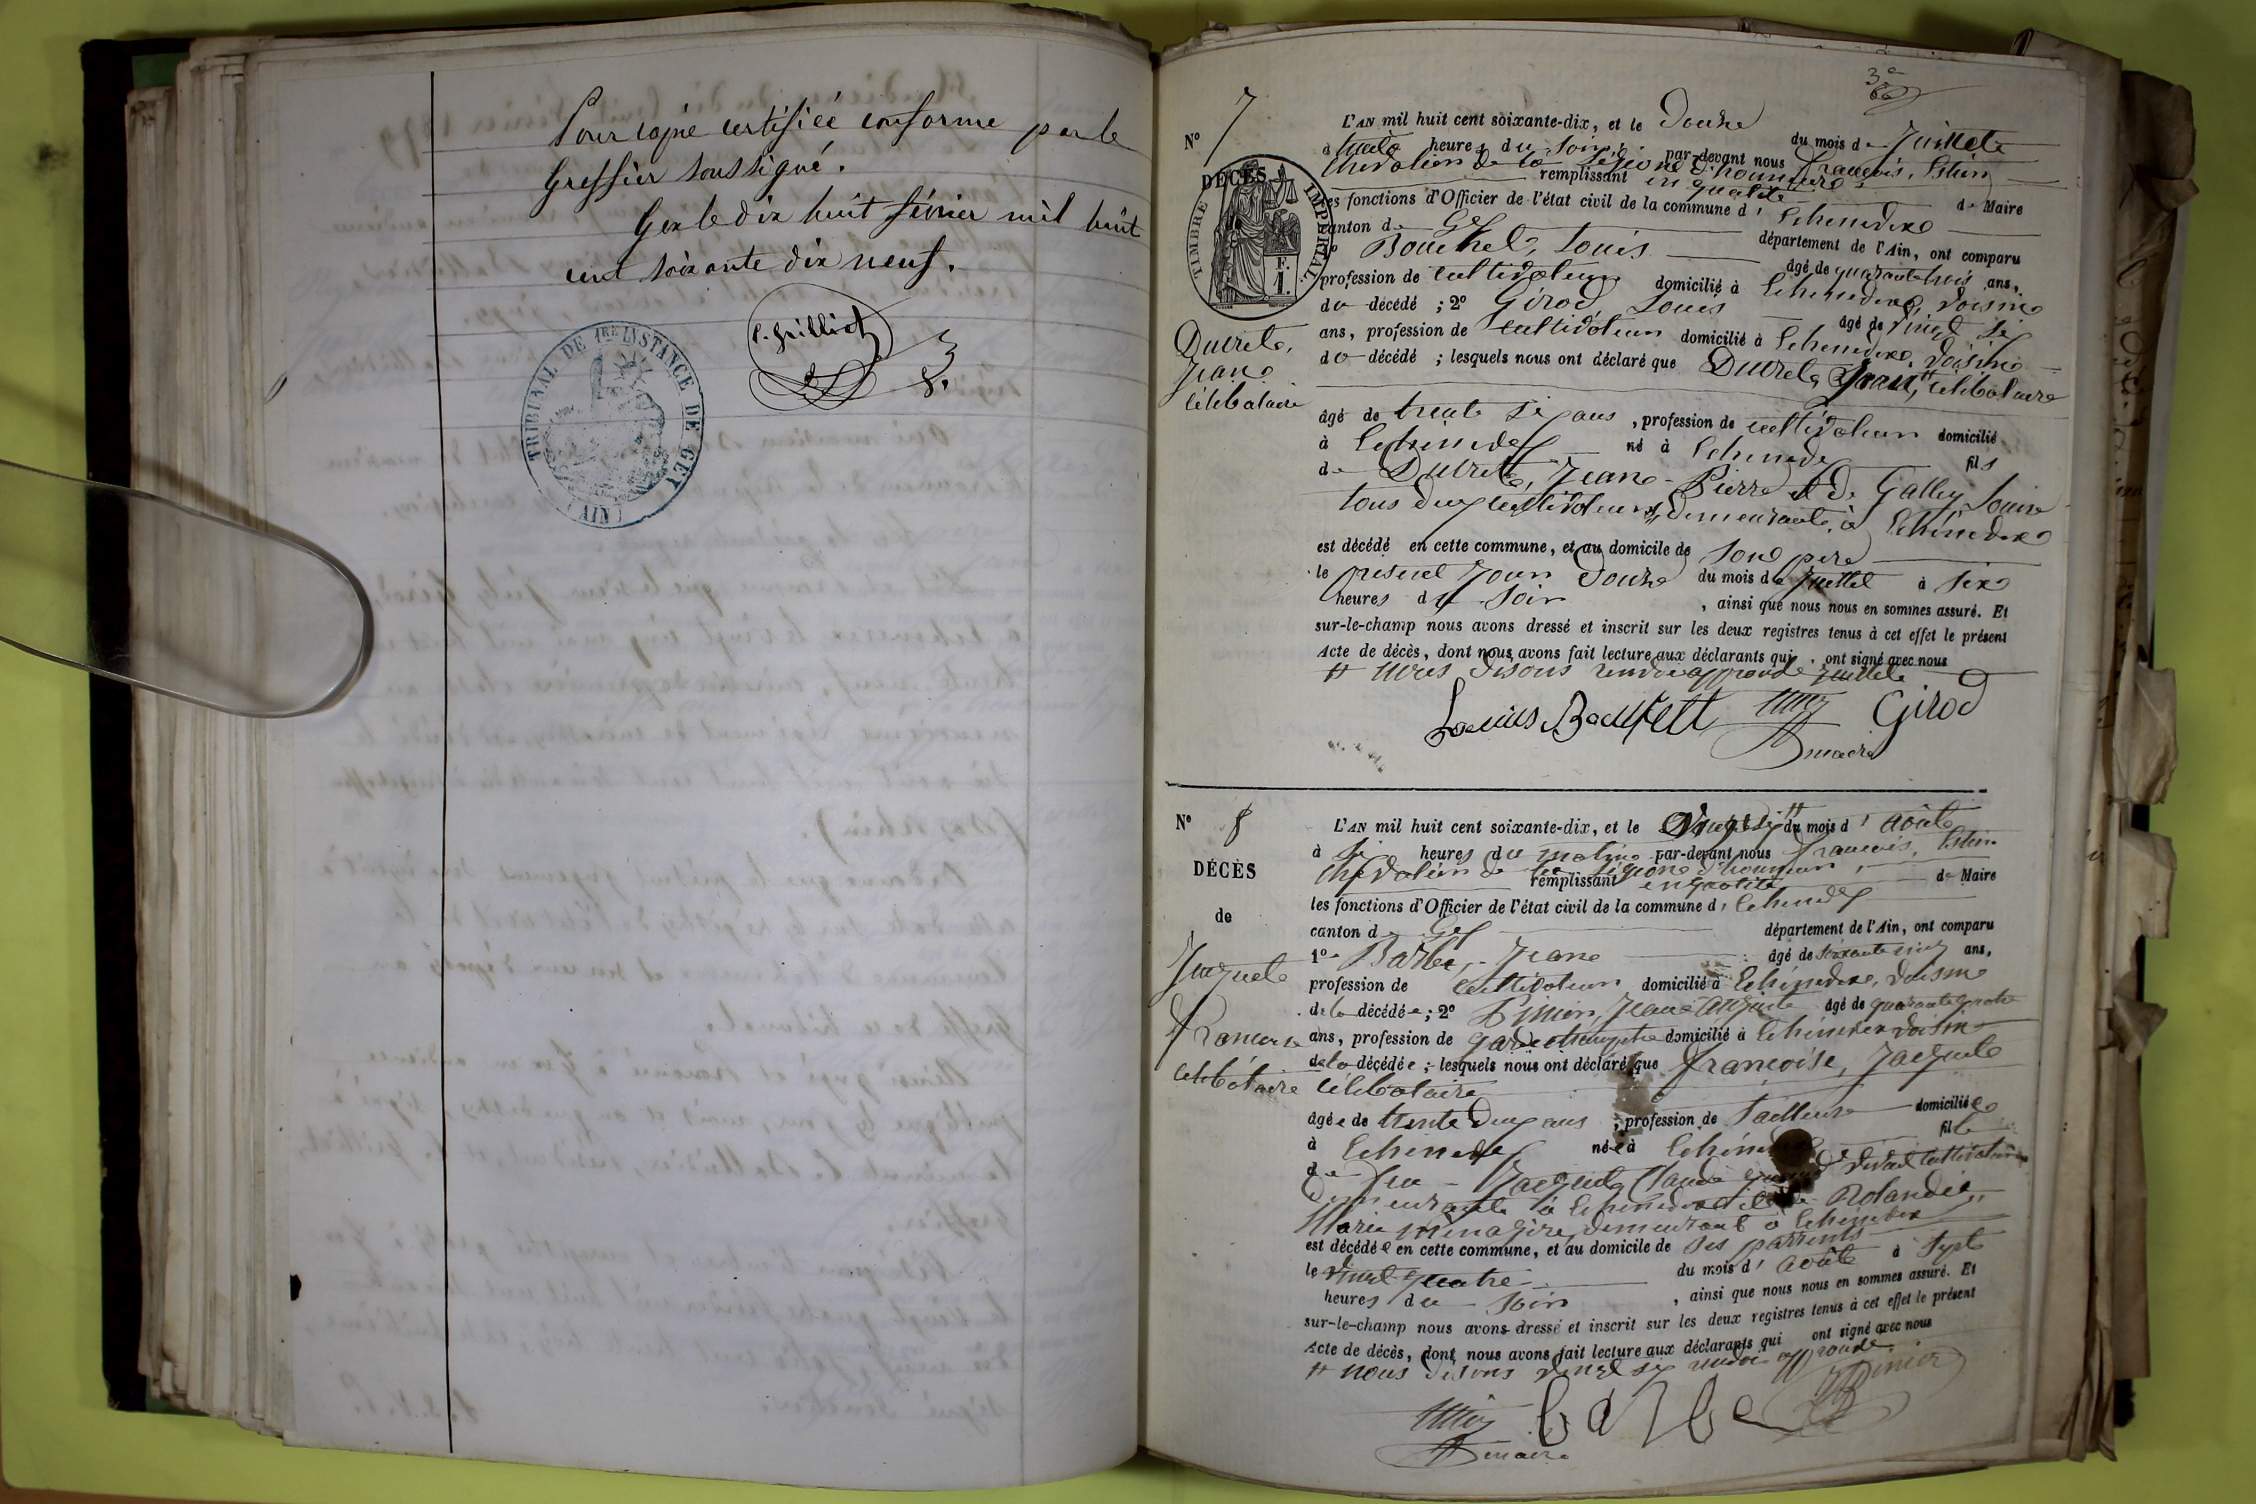 Pour copie certifiée conforme par le
Greffier soussigné.
Gex le dix huit février mil huit
cent soixante dix neuf.
TRIBUNAL DE 1RE INSTANCE DE GEX
(AIN)
3e
N° 7
DÉCÈS
TIMBRE IMPERIAL
F.
1.
Ducret,
Jean
célibataire
L'AN mil huit cent soixante-dix, et le Douze du mois de Juillet
à huit heures du soir, par-devant nous François,
chevalier de la Légion d'honneur remplissant en qualité de Maire
les fonctions d'Officier de l'état civil de la commune d'Echenevex
canton de Gex département de l'Ain, ont comparu
Louis âgé de quarante trois ans,
profession de cultivateur domicilié à Echenevex, voisin
du décédé ; 2° Girod, Louis âgé de vingt six
ans, profession de cultivateur domicilié à Echenevex, voisin
du décédé ; lesquels nous ont déclaré que Ducret, Jean, célibataire
âgé de trente six ans, profession de cultivateur domicilié
à Echenevex né à Echenevex fils
de Ducret, Jean-Pierre et de Galley, Louise
tous deux cultivateurs, demeurant à Echenevex
est décédé en cette commune, et au domicile de son père
le présent jour Douze du mois de Juillet à six
heures du soir, ainsi que nous nous en sommes assuré. Et
sur-le-champ nous avons dressé et inscrit sur les deux registres tenus à cet effet le présent
Acte de décès, dont nous avons fait lecture aux déclarants qui ont signé avec nous
nous disons approuvé Juillet
Louis Girod
maire
N° 8
DÉCÈS
de
Jacquet
Françoise
célibataire
L'AN mil huit cent soixante-dix, et le vingt six du mois d'août
à six heures du matin par-devant nous François,
chevalier de la Légion d'honneur, remplissant en qualité de Maire
les fonctions d'Officier de l'état civil de la commune d'Echenevex
canton de Gex département de l'Ain, ont comparu
1° Barbe, Jean âgé de soixante cinq ans,
profession de cultivateur domicilié à Echenevex, voisin
de la décédée ; 2° Jean âgé de quarante quatre
ans, profession de garde champêtre domicilié à Echenevex voisin
de la décédée ; lesquels nous ont déclaré que Françoise, Jacquet
célibataire
âgée de trente deux ans, profession de Tailleuse domiciliée
à Echenevex née à Echenevex fille
de feu Jacquet, Claude vivait cultivateur
demeurant à Echenevex et de Rolandez,
Marie ménagère, demeurant à Echenevex
est décédée en cette commune, et au domicile de ses parrents
le vingt quatre du mois d'août à sept
heures du soir, ainsi que nous nous en sommes assuré. Et
sur-le-champ nous avons dressé et inscrit sur les deux registres tenus à cet effet le présent
Acte de décès, dont nous avons fait lecture aux déclarants qui ont signé avec nous
nous disons vingt six approuvé
barbe
maire